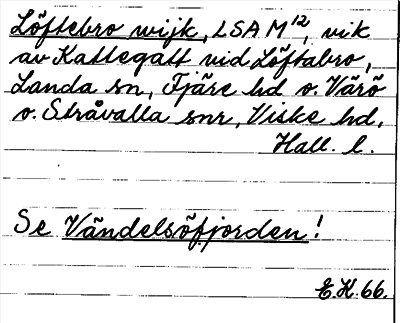 Löftebro wijk, LSA M¹², vik
av Kattegatt vid Löftabro,
Landa sn, Fjäre hd o. Värö
o. Stråvalla snr, Viske hd,
Hall. l.
Se Vändelsöfjorden!
E.H.66.